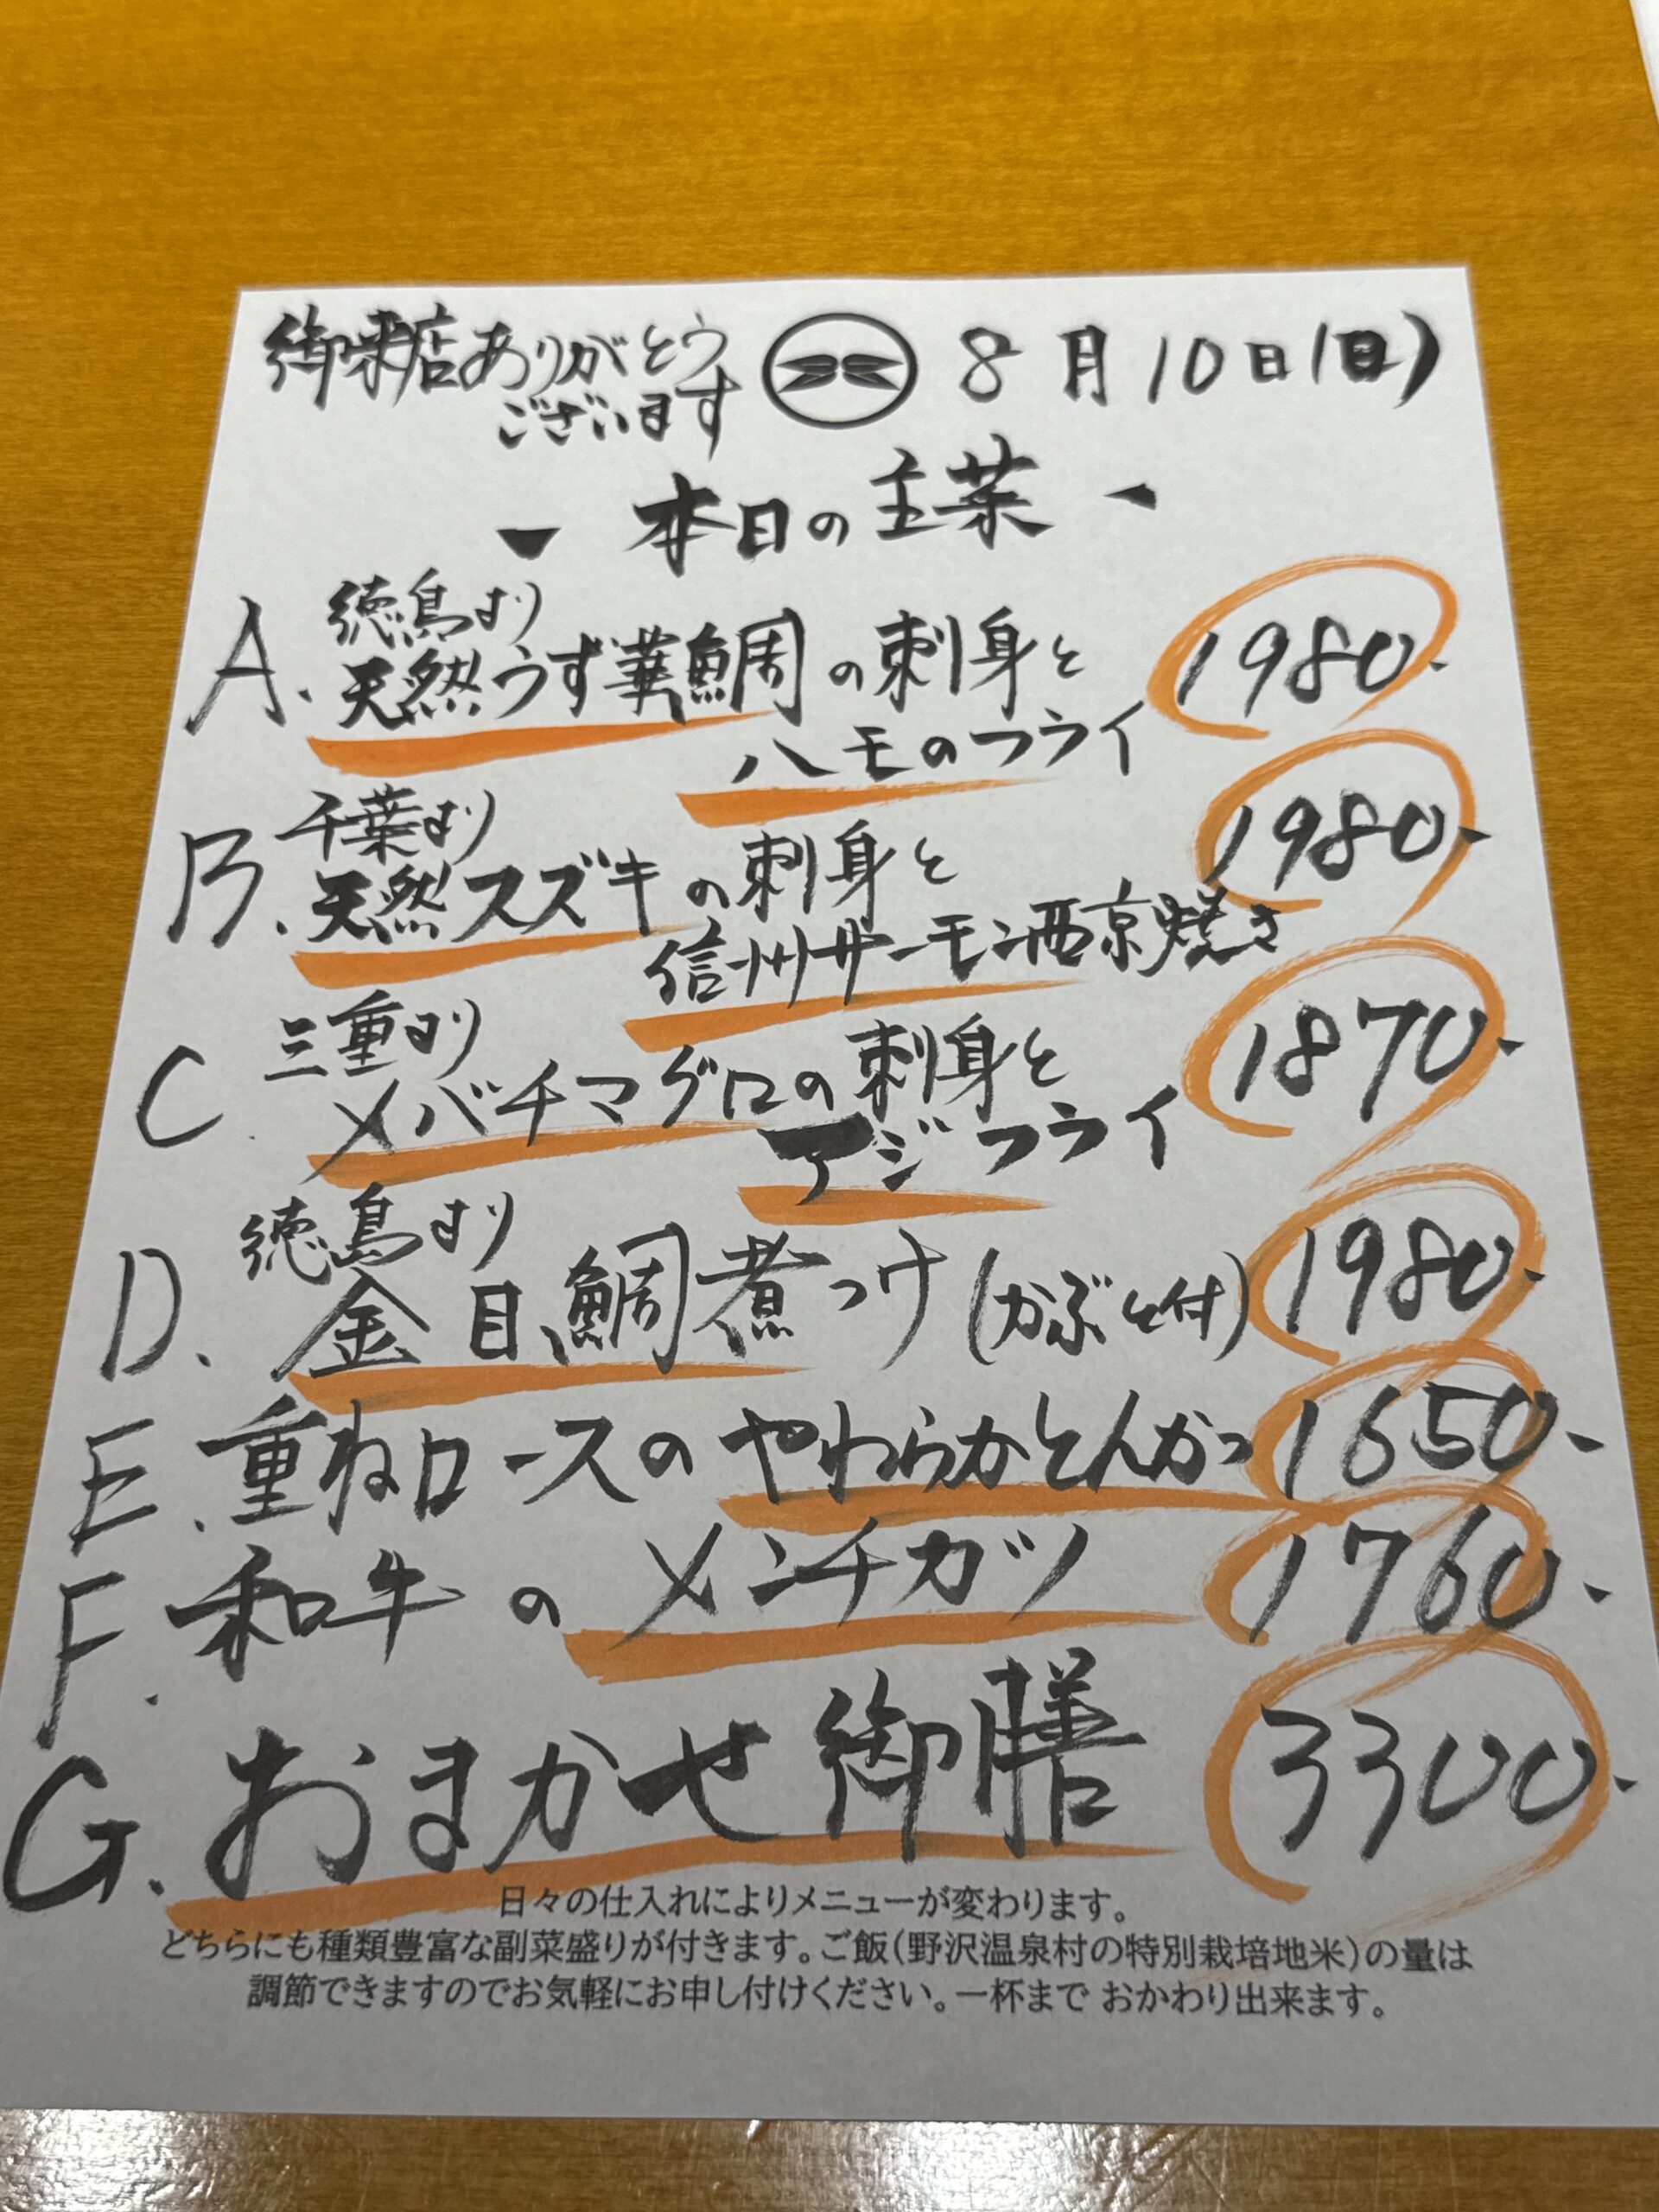 御来店ありがとう
ございます
8月10日(日)
本日の主菜
A. 徳島より
天然うず華鯛の刺身と
ハモのフライ
1980.
B. 千葉より
天然スズキの刺身と
信州サーモン西京焼き
1980.
C. 三重より
メバチマグロの刺身と
アジフライ
1870.
D. 徳島より
金目鯛煮つけ(かぶと付)
1980.
E. 重ねロースのやわらかとんかつ 1650.
F. 和牛のメンチカツ 1760.
G. おまかせ御膳 3300.
日々の仕入れによりメニューが変わります。
どちらにも種類豊富な副菜盛りが付きます。ご飯(野沢温泉村の特別栽培地米)の量は
調節できますのでお気軽にお申し付けください。一杯まで おかわり出来ます。